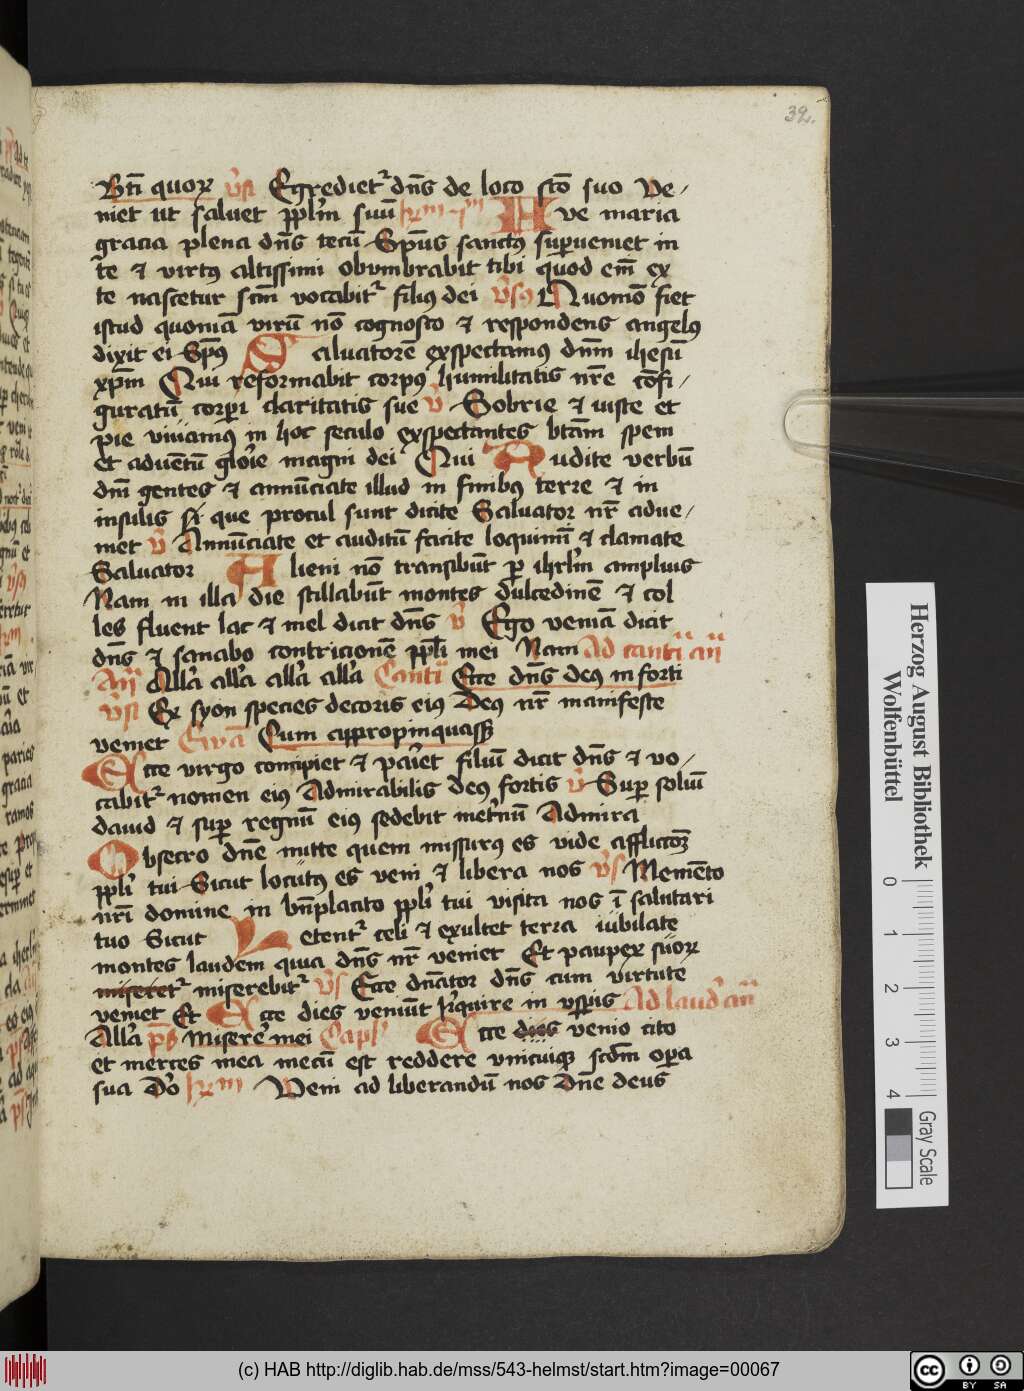 32.
Btī quoꝝ v̄si Egrediet᷑ dn̄s de loco sc̄o suo Ve⸗
niet ut saluet pp̄lm̄ suū Ave maria
gracia plena dn̄s tecū Sp̄us sanctꝰ suꝑueniet in
te ⁊ virtꝰ altissimi obumbrabit tibi quod em̄ ex
te nascetur sc̄m vocabit᷑ filiꝰ dei v̄sꝰ Quomō fiet
istud quoniā virū nō cognosco ⁊ respondens angelꝰ
dixit ei Sp̄ꝰ Saluatorē exspectamꝰ dn̄m ihesū
xp̄m Qui reformabit corpꝰ humilitatis nr̄e cōfi⸗
guratū corpori claritatis sue v̄ Sobrie ⁊ iuste et
pie viuamꝰ in hoc seculo exspectantes bt̄am spem
et aduētū glor̄ie magni dei Qui Audite verbū
dn̄i gentes ⁊ annūciate illud in finibꝰ terre ⁊ in
insulis que procul sunt dicite Saluator nr̄ adue⸗
niet v̄ Annūciate et auditū facite loquimī ⁊ clamate
Saluator Alieni nō transibūt ꝑ ihrl̄m amplius
Nam in illa die stillabūt montes dulcedinē ⁊ col
les fluent lac ⁊ mel dicit dn̄s v̄ Ego veniā dicit
dn̄s ⁊ sanabo contricionē pp̄li mei Nam Ad canti añ
Añ All̄a all̄a all̄a all̄a Canti Ecce dn̄s deꝰ in forti
v̄si Ex syon species decoris eiꝰ Deꝰ nr̄ manifeste
veniet Ewā Cum appropinquass̄
Ecce virgo concipiet ⁊ pariet filiū dicit dn̄s ⁊ vo⸗
cabit᷑ nomen eiꝰ Admirabilis deꝰ fortis v̄ Suꝑ soliū
dauid ⁊ suꝑ regnū eiꝰ sedebit in et̄nū Admira
Obsecro dn̄e mitte quem missurꝰ es vide afflictōꝫ
pp̄li tui Sicut locutꝰ es veni ⁊ libera nos v̄s Memēto
nr̄i domine in bn̄placito pp̄li tui visita nos ī salutari
tuo Sicut Letent᷑ celi ⁊ exultet terra iubilate
montes laudem quia dn̄s nr̄ veniet Et pauperꝝ suoꝝ
miseret᷑ miserebit᷑ v̄s Ecce dn̄ator dn̄s cum virtute
veniet Et Ecce dies veniūt Require in vesperis Ad laud añ
All̄a ps̄ Miserere mei Capl̄ Ecce dies venio cito
et merces mea mecū est reddere unicuiqꝫ scd̄m oꝑa
sua Dō Veni ad liberandū nos Dn̄e deus
Herzog August Bibliothek
Wolfenbüttel
0 1 2 3 4
Gray Scale
(c) HAB http://diglib.hab.de/mss/543-helmst/start.htm?image=00067
cc BY SA